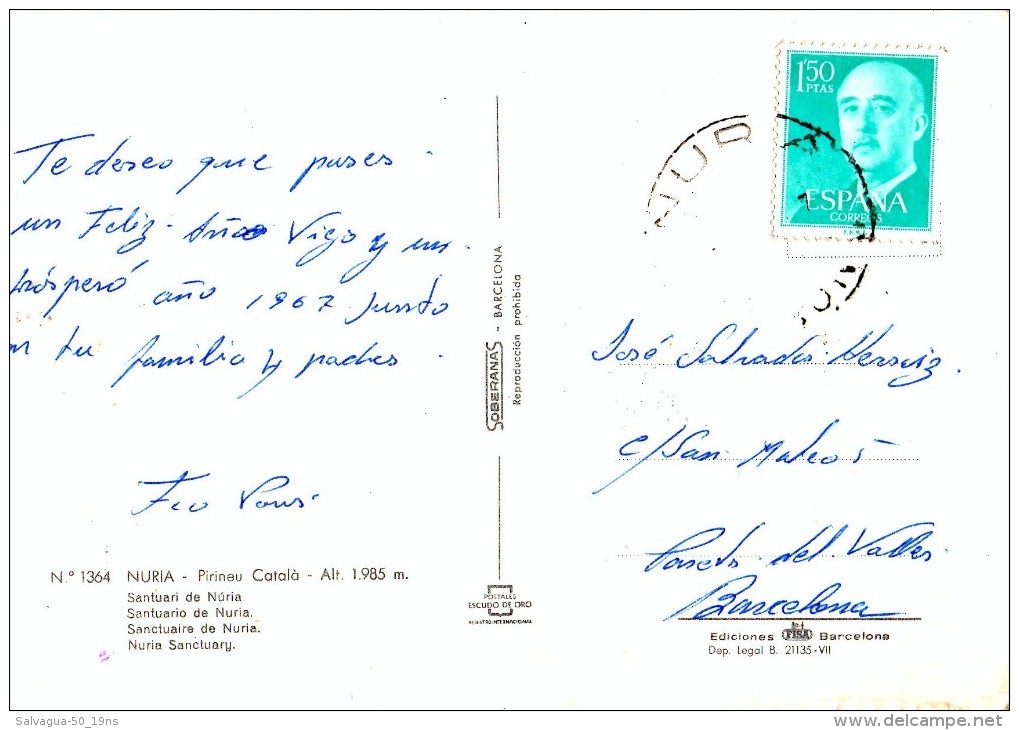 Te deseo que pases
un Feliz. Año Viejo y un
próspero año 1967 Junto
con tu familia y padres.
Fco Pons
Nº 1364 NURIA - Pirineu Català - Alt. 1.985 m.
Santuari de Núria.
Santuario de Nuria.
Sanctuaire de Nuria.
Nuria Sanctuary.
SOBERANAS - BARCELONA
Reproducción prohibida
POSTALES
ESCUDO DE ORO
REGISTRO INTERNACIONAL
1'50
PTAS
ESPAÑA
CORREOS
José Salvador
c/San Mateo 5
Pareds. del Valles.
Barcelona
Ediciones FISA Barcelona
Dep. Legal B. 21135-VII
Salvagua-50_19ns
www.delcampe.net